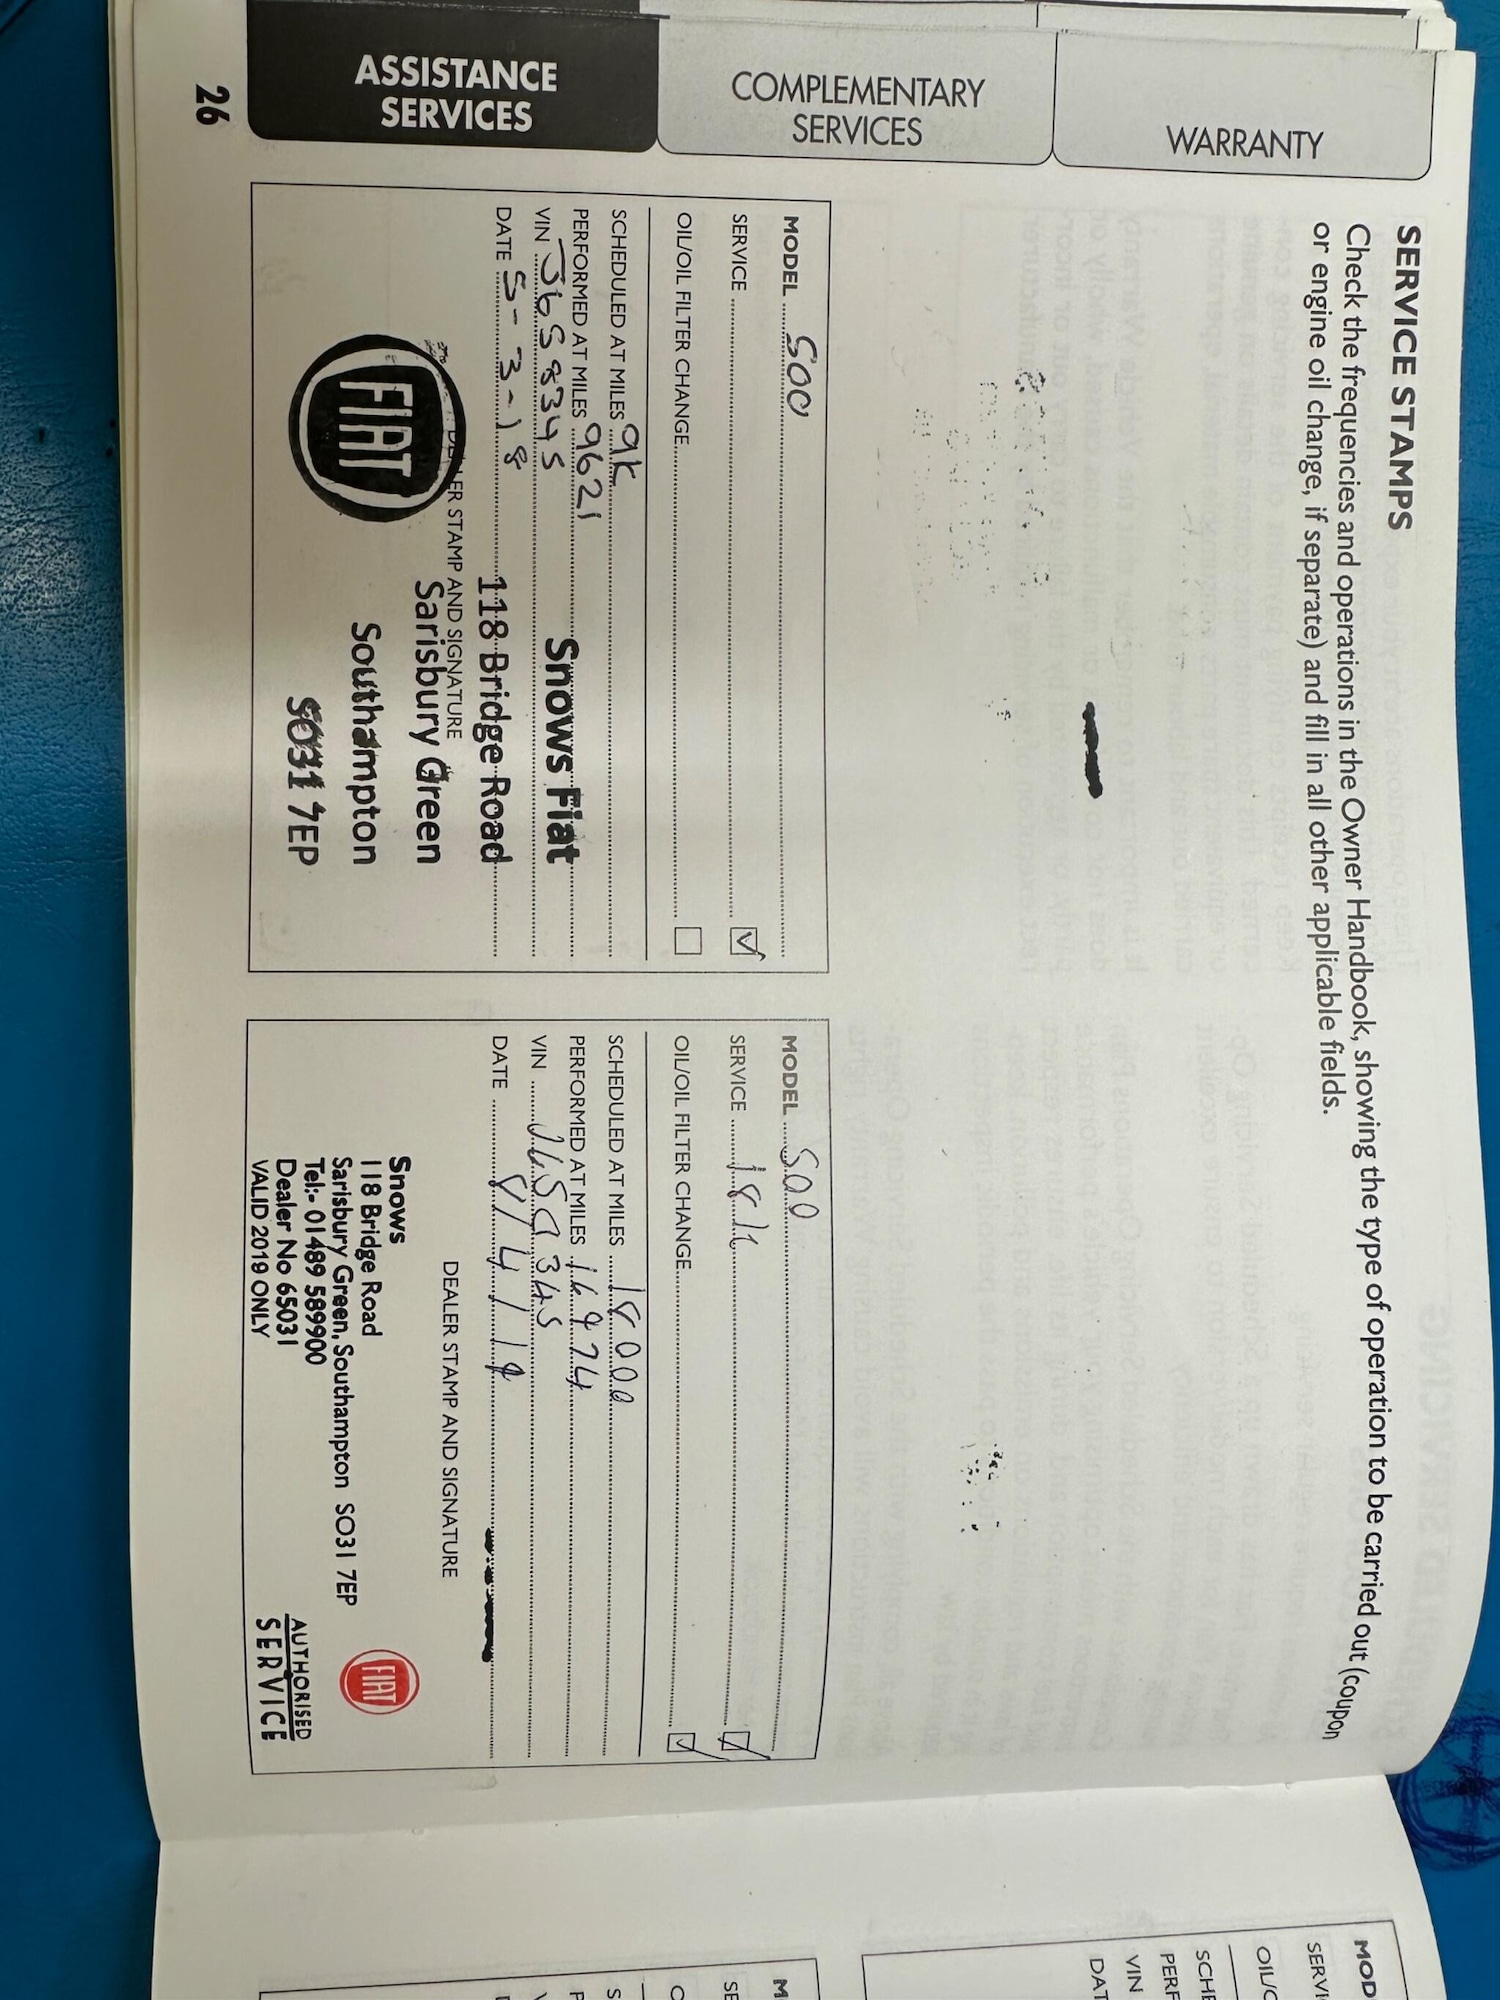 WARRANTY
COMPLEMENTARY
SERVICES
ASSISTANCE
SERVICES
26
SERVICE STAMPS
Check the frequencies and operations in the Owner Handbook, showing the type of operation to be carried out (coupon
or engine oil change, if separate) and fill in all other applicable fields.
MODEL 500
SERVICE
OIL/OIL FILTER CHANGE
SCHEDULED AT MILES 9K
PERFORMED AT MILES 9621
VIN J6S9345
DATE 5-3-18
DEALER STAMP AND SIGNATURE
FIAT
Snows Fiat
118 Bridge Road
Sarisbury Green
Southampton
SO31 7EP
MODEL 500
SERVICE 18K
OIL/OIL FILTER CHANGE
SCHEDULED AT MILES 18000
PERFORMED AT MILES 16974
VIN J6S9345
DATE 8/4/19
DEALER STAMP AND SIGNATURE
Snows
118 Bridge Road
Sarisbury Green, Southampton SO31 7EP
Tel:- 01489 589900
Dealer No 65031
VALID 2019 ONLY
FIAT
AUTHORISED
SERVICE
MOD
SERVI
OIL/O
SCHE
PERF
VIN
DAT
M
SE
O
S
P
V